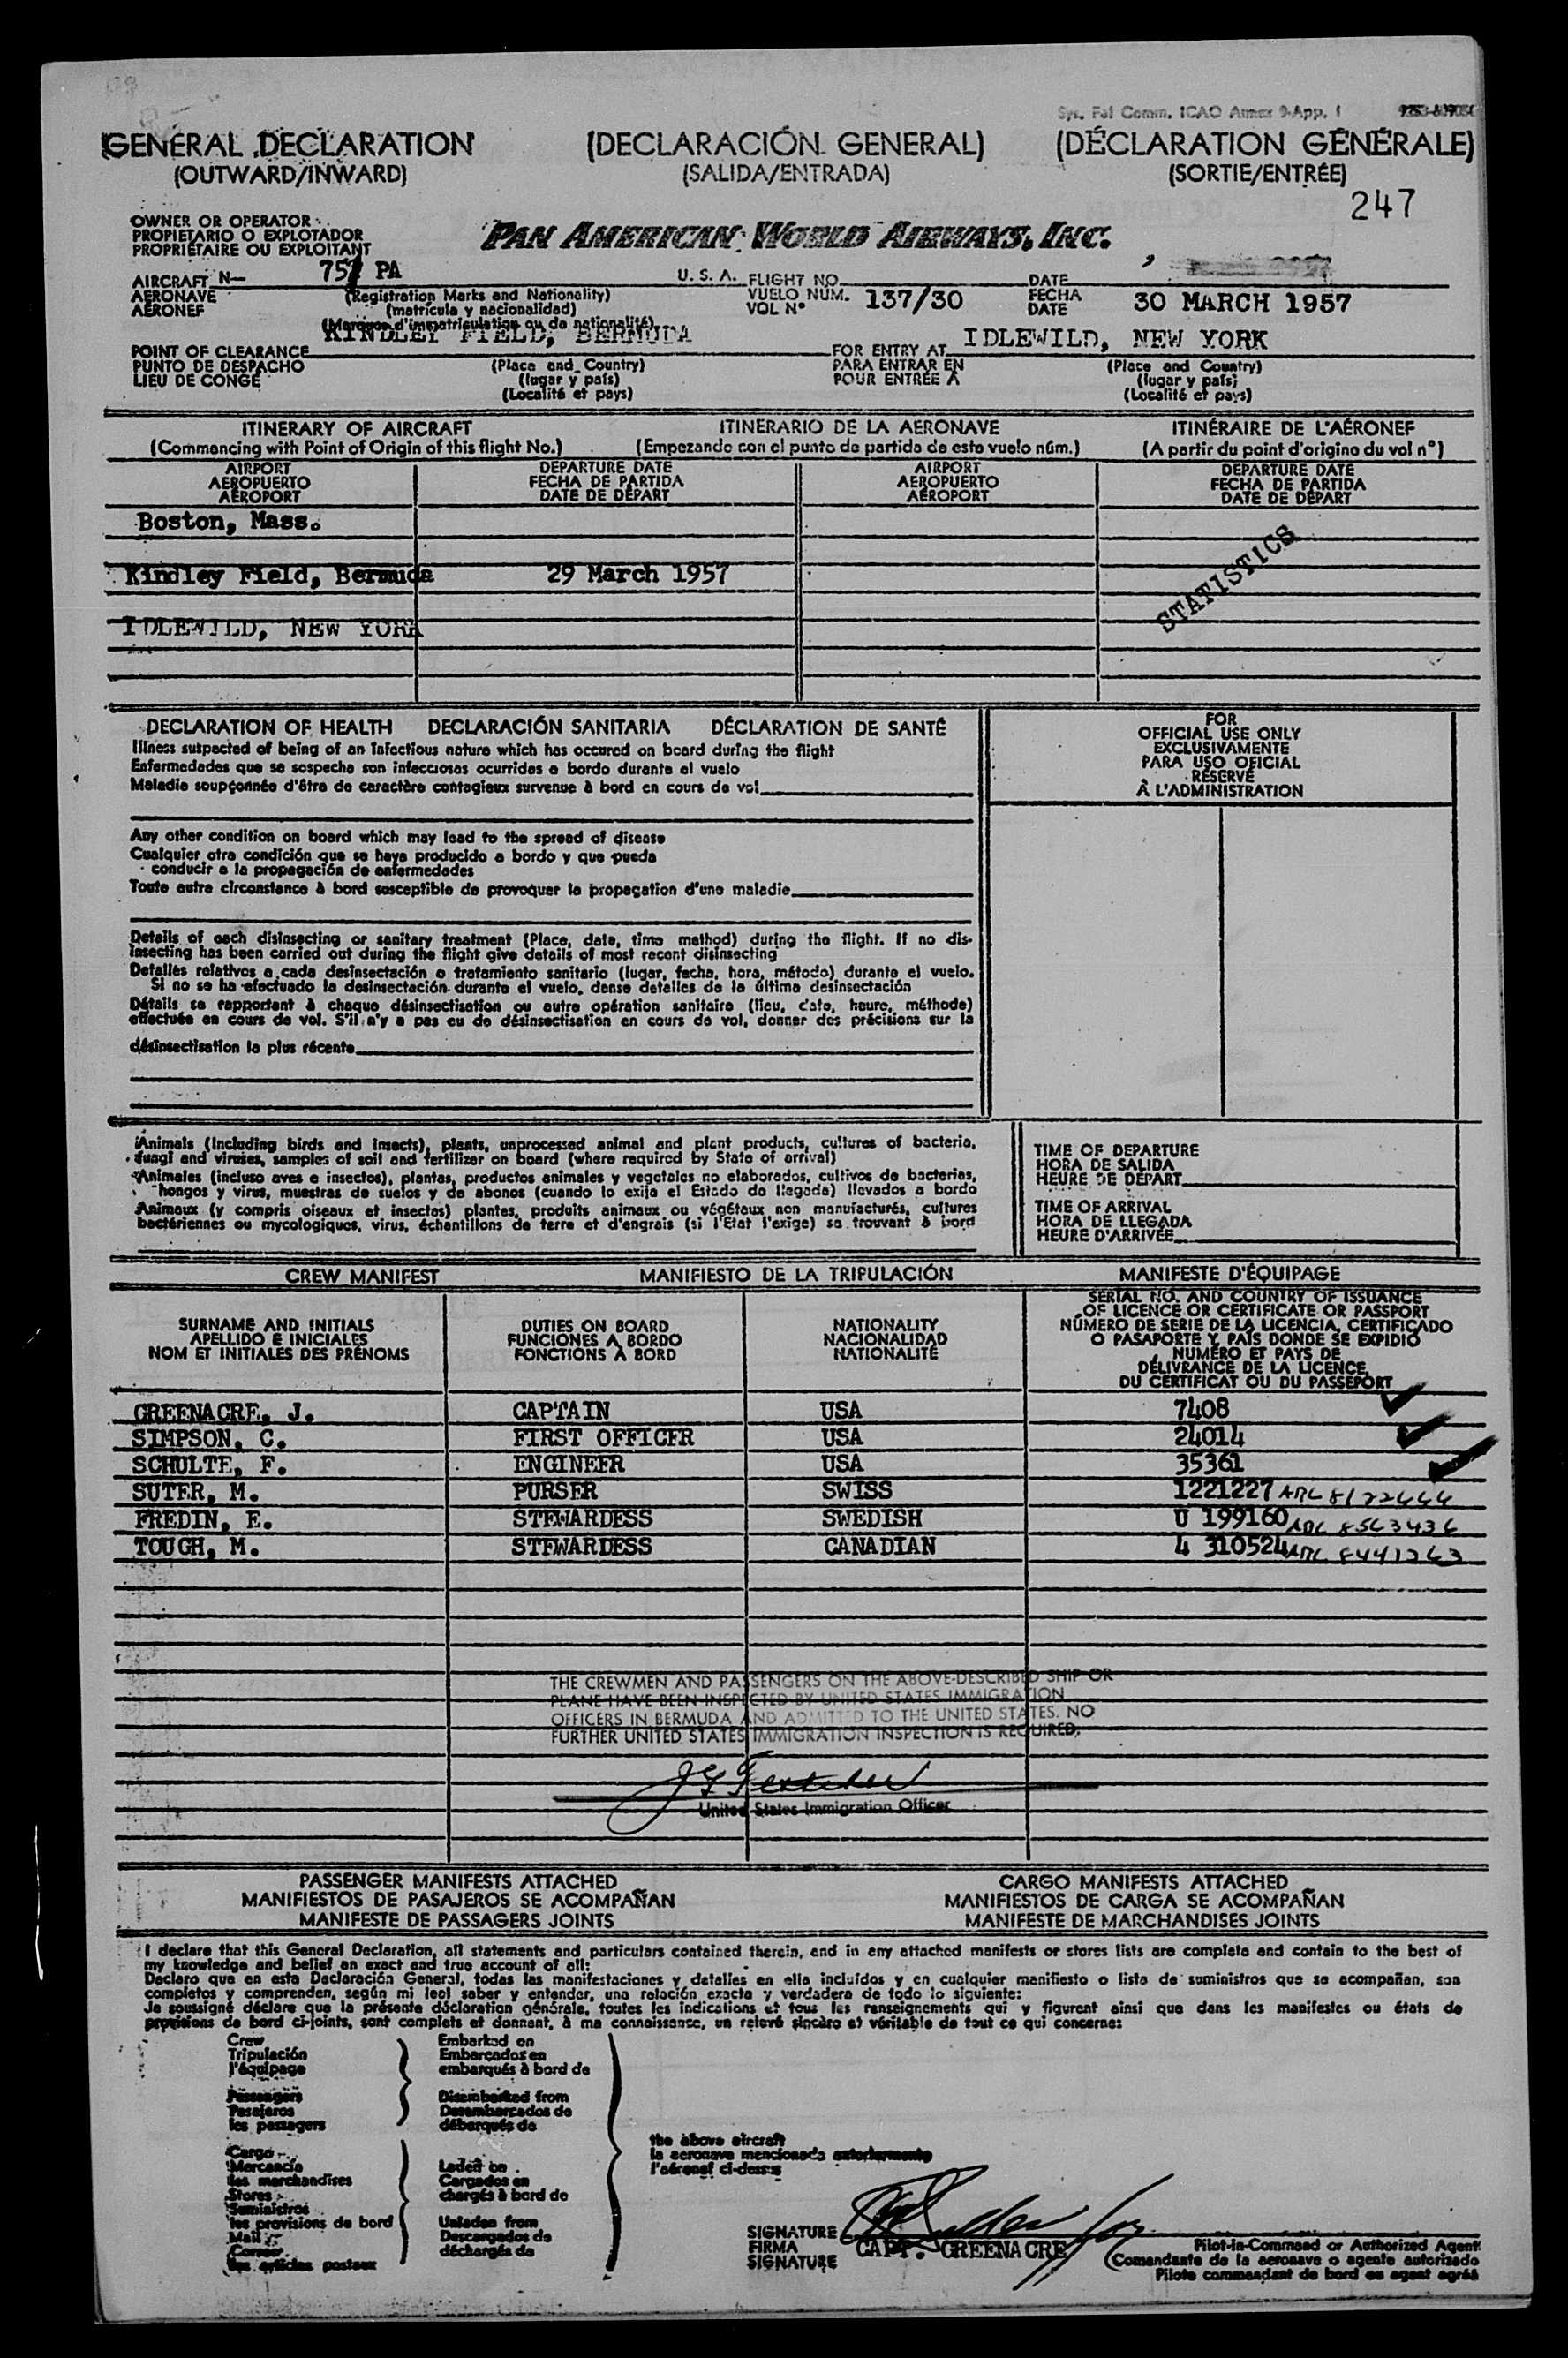 Sys. Fal Comm. ICAO Annex 9-App. 1
GENERAL DECLARATION (DECLARACIÓN GENERAL) (DÉCLARATION GÉNÉRALE)
(OUTWARD/INWARD) (SALIDA/ENTRADA) (SORTIE/ENTRÉE)
247
OWNER OR OPERATOR
PROPIETARIO O EXPLOTADOR
PROPRIÉTAIRE OU EXPLOITANT
PAN AMERICAN WORLD AIRWAYS, INC.
AIRCRAFT N— PA U. S. A. FLIGHT NO. DATE
AERONAVE (Registration Marks and Nationality) VUELO NÚM. 137/30 FECHA 30 MARCH 1957
AÉRONEF (matrícula y nacionalidad) VOL Nº DATE
(Marques d'immatriculation ou de nationalité)
KINDLEY FIELD, BERMUDA IDLEWILD, NEW YORK
POINT OF CLEARANCE (Place and Country) FOR ENTRY AT (Place and Country)
PUNTO DE DESPACHO (lugar y país) PARA ENTRAR EN (lugar y país)
LIEU DE CONGÉ (Localité et pays) POUR ENTRÉE À (Localité et pays)
ITINERARY OF AIRCRAFT ITINERARIO DE LA AERONAVE ITINÉRAIRE DE L'AÉRONEF
(Commencing with Point of Origin of this flight No.) (Empezando con el punto de partida de este vuelo núm.) (A partir du point d'origine du vol nº)
AIRPORT DEPARTURE DATE AIRPORT DEPARTURE DATE
AEROPUERTO FECHA DE PARTIDA AEROPUERTO FECHA DE PARTIDA
AÉROPORT DATE DE DÉPART AÉROPORT DATE DE DÉPART
Boston, Mass.
Kindley Field, Bermuda 29 March 1957
STATISTICS
IDLEWILD, NEW YORK
DECLARATION OF HEALTH DECLARACIÓN SANITARIA DÉCLARATION DE SANTÉ
Illness suspected of being of an Infectious nature which has occured on board during the flight
Enfermedades que se sospecha son infecciosas ocurridas a bordo durante el vuelo
Maladie soupçonnée d'être de caractère contagieux survenue à bord en cours de vol
FOR
OFFICIAL USE ONLY
EXCLUSIVAMENTE
PARA USO OFICIAL
RÉSERVÉ
À L'ADMINISTRATION
Any other condition on board which may lead to the spread of disease
Cualquier otra condición que se haya producido a bordo y que pueda
conducir a la propagación de enfermedades
Toute autre circonstance à bord susceptible de provoquer la propagation d'une maladie
Details of each disinsecting or sanitary treatment (Place, date, time method) during the flight. If no dis-
insecting has been carried out during the flight give details of most recent disinsecting
Detalles relativos a cada desinsectación o tratamiento sanitario (lugar, fecha, hora, método) durante el vuelo.
Si no se ha efectuado la desinsectación durante el vuelo, dense detalles de la última desinsectación
Détails se rapportant à chaque désinsectisation ou autre opération sanitaire (lieu, date, heure, méthode)
effectuée en cours de vol. S'il n'y a pas eu de désinsectisation en cours de vol, donner des précisions sur la
désinsectisation la plus récente
Animals (Including birds and insects), plants, unprocessed animal and plant products, cultures of bacteria,
fungi and viruses, samples of soil and fertilizer on board (where required by State of arrival)
Animales (incluso aves e insectos), plantas, productos animales y vegetales no elaborados, cultivos de bacterias,
hongos y virus, muestras de suelos y de abonos (cuando lo exija el Estado de llegada) llevados a bordo
Animaux (y compris oiseaux et insectes) plantes, produits animaux ou végétaux non manufacturés, cultures
bactériennes ou mycologiques, virus, échantillons de terre et d'engrais (si l'Etat l'exige) se trouvant à bord
TIME OF DEPARTURE
HORA DE SALIDA
HEURE DE DÉPART
TIME OF ARRIVAL
HORA DE LLEGADA
HEURE D'ARRIVÉE
CREW MANIFEST MANIFIESTO DE LA TRIPULACIÓN MANIFESTE D'ÉQUIPAGE
SURNAME AND INITIALS
APELLIDO E INICIALES
NOM ET INITIALES DES PRÉNOMS
DUTIES ON BOARD
FUNCIONES A BORDO
FONCTIONS À BORD
NATIONALITY
NACIONALIDAD
NATIONALITÉ
SERIAL NO. AND COUNTRY OF ISSUANCE
OF LICENCE OR CERTIFICATE OR PASSPORT
NÚMERO DE SERIE DE LA LICENCIA, CERTIFICADO
O PASAPORTE Y PAÍS DONDE SE EXPIDIÓ
NUMÉRO ET PAYS DE
DÉLIVRANCE DE LA LICENCE,
DU CERTIFICAT OU DU PASSEPORT
GREENACRE, J. CAPTAIN USA 7408
SIMPSON, C. FIRST OFFICER USA 24014
SCHULTE, F. ENGINEER USA 35361
SUTER, M. PURSER SWISS 1221227
FREDIN, E. STEWARDESS SWEDISH U 199160
TOUGH, M. STEWARDESS CANADIAN 4 310524
THE CREWMEN AND PASSENGERS ON THE ABOVE-DESCRIBED SHIP OR
PLANE HAVE BEEN INSPECTED BY UNITED STATES IMMIGRATION
OFFICERS IN BERMUDA AND ADMITTED TO THE UNITED STATES. NO
FURTHER UNITED STATES IMMIGRATION INSPECTION IS REQUIRED.
United States Immigration Officer
PASSENGER MANIFESTS ATTACHED CARGO MANIFESTS ATTACHED
MANIFIESTOS DE PASAJEROS SE ACOMPAÑAN MANIFIESTOS DE CARGA SE ACOMPAÑAN
MANIFESTE DE PASSAGERS JOINTS MANIFESTE DE MARCHANDISES JOINTS
I declare that this General Declaration, all statements and particulars contained therein, and in any attached manifests or stores lists are complete and contain to the best of
my knowledge and belief an exact and true account of all:
Declaro que en esta Declaración General, todas las manifestaciones y detalles en ella incluídos y en cualquier manifiesto o lista de suministros que se acompañan, son
completos y comprenden, según mi leal saber y entender, una relación exacta y verdadera de todo lo siguiente:
Je soussigné déclare que la présente déclaration générale, toutes les indications et tous les renseignements qui y figurent ainsi que dans les manifestes ou états de
provisions de bord ci-joints, sont complets et donnent, à ma connaissance, un relevé sincère et véritable de tout ce qui concerne:
Crew Embarked on
Tripulación Embarcados en
l'équipage embarqués à bord de
Passengers Disembarked from
Pasajeros Desembarcados de
les passagers débarqués de
the above aircraft
la aeronave mencionada anteriormente
l'aéronef ci-dessus
Cargo
Mercancía Laden on
les marchandises Cargados en
Stores chargés à bord de
Suministros
les provisions de bord Unladen from
Mail Descargados de
Correo déchargés de
les articles postaux
SIGNATURE
FIRMA CAPT. GREENACRE
SIGNATURE
Pilot-in-Command or Authorized Agent
Comandante de la aeronave o agente autorizado
Pilote commandant de bord ou agent agréé